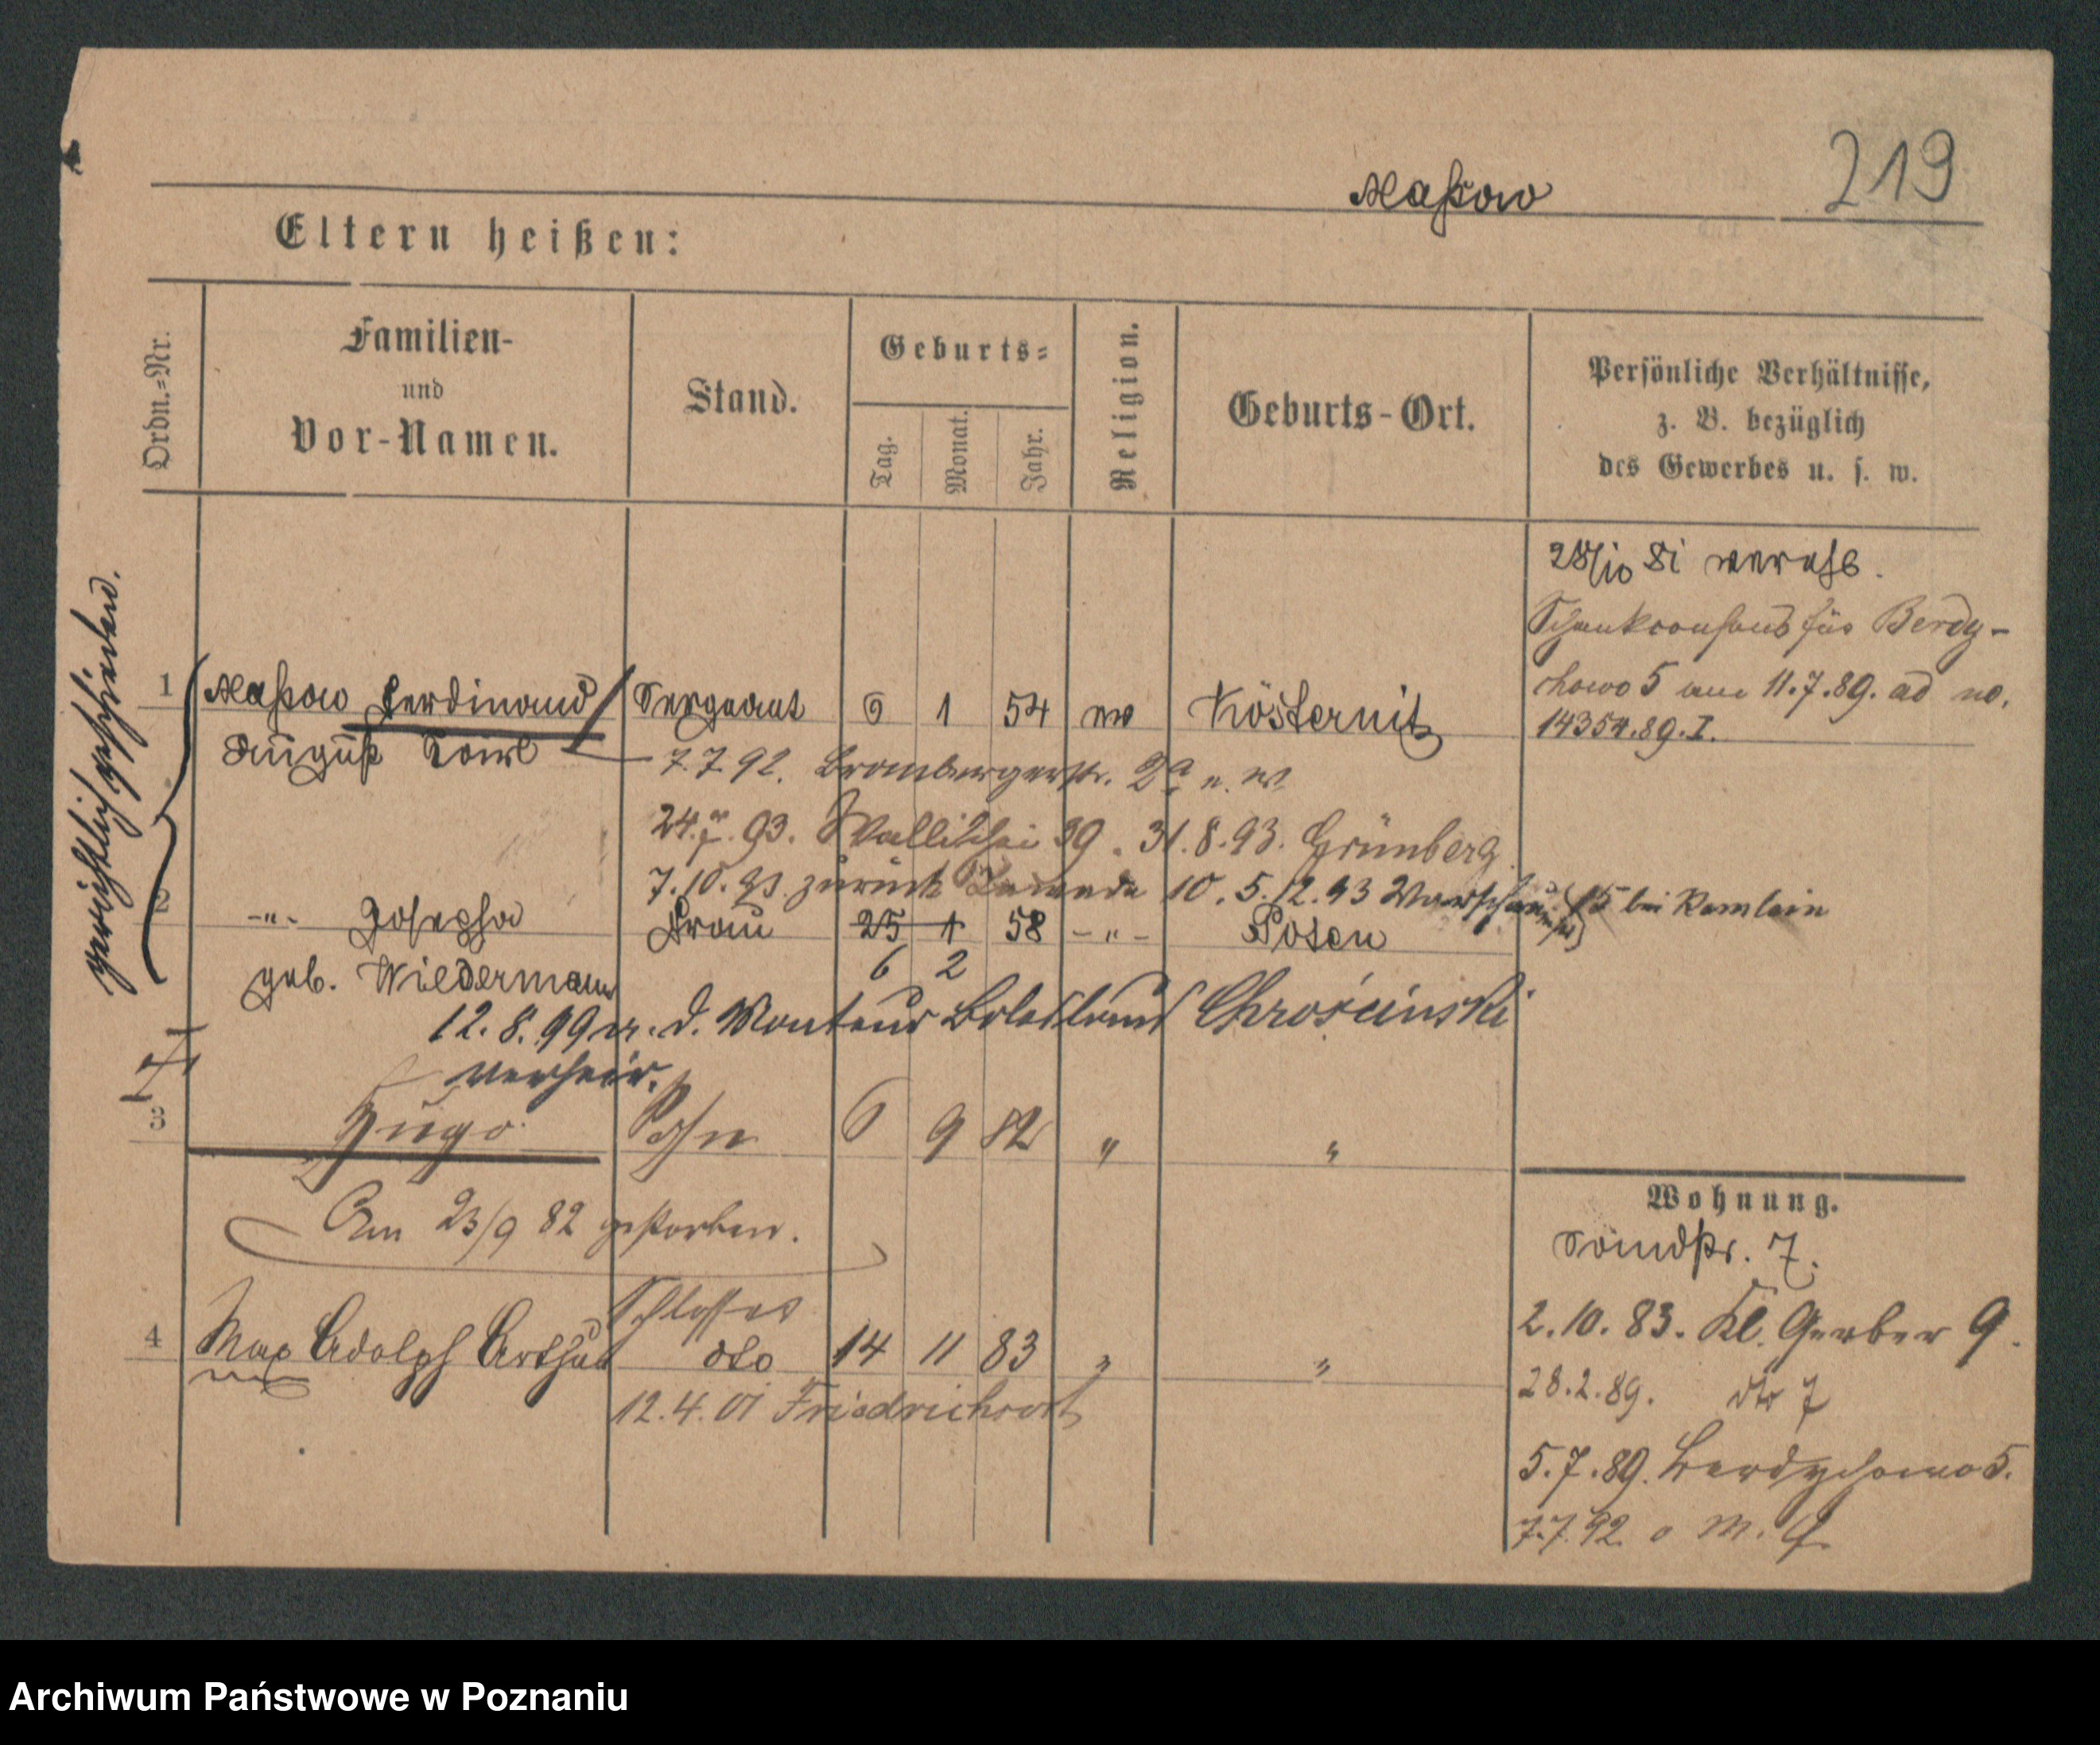 219
Maßow
Eltern heißen:
Ordn.=Nr.
Familien-
und
Vor-Namen.
Stand.
Geburts=
Tag.
Monat.
Jahr.
Religion.
Geburts-Ort.
Persönliche Verhältnisse,
z. B. bezüglich
des Gewerbes u. s. w.
28/10 81
Schankconsens für Berdy-
chowo 5 11.7.89. ad no.
14354.89.I.
gerichtlich geschieden.
1 Maßow Ferdinand Sergeant 6 1 54 ev Kösternitz
August Carl 7.7.92. Brombergerstr. 2a
24. 93. Wallischei 39. 31.8.93. Grünberg
7.10.93. zurück 10. 5.12.93 15 bei Ramlein
2 -"- Josepha Frau 25 1 58 -"- Posen
6 2
geb. Wiedermann
12.8.99 m. d. Monteur Boleslaus Chrościnski
verheir.
3 Hugo Sohn 6 9 82 " "
Am 23/9 82 gestorben.
Schlosser
4 Max Adolph Arthur dto 14 11 83 " "
12.4.01 Friedrichsort
Wohnung.
Sandstr. 7.
2.10.83. Kl. Gerber 9.
28.2.89. dto 7
5.7.89. Berdychowo 5.
7.7.92
Archiwum Państwowe w Poznaniu